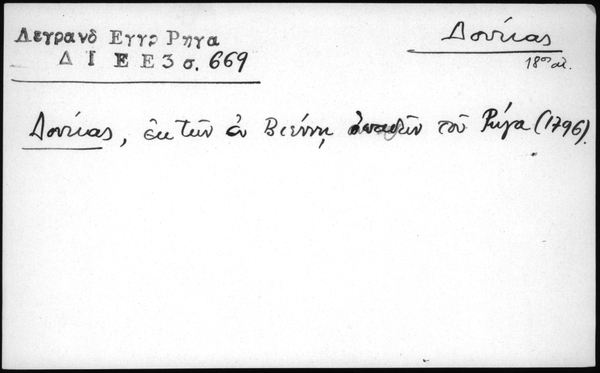 Λεγρανδ Εγγρ Ρηγα
Δ Ι Ε Ε 3 σ. 669
Δούκας
18ος αἰ.
Δούκας, ἐκ τῶν ἐν Βιέννῃ ὀπαδῶν τοῦ Ρήγα (1796).